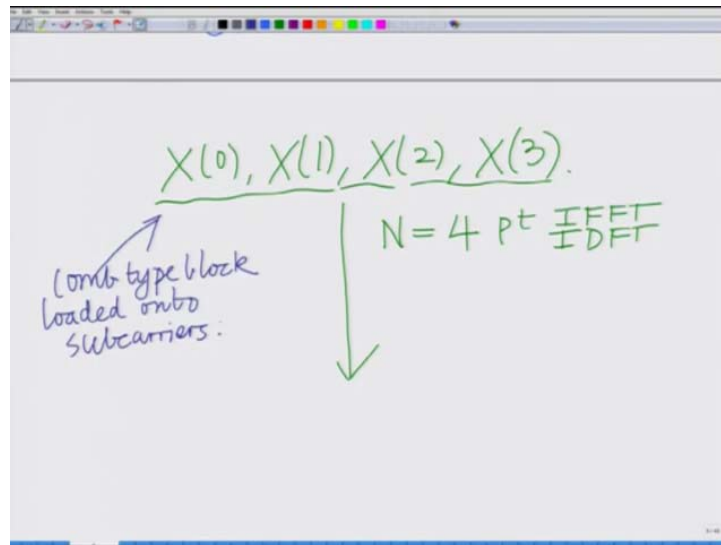 X(0), X(1), X(2), X(3).
N = 4 pt IFFT
IDFT
Comb type block
loaded onto
subcarriers.